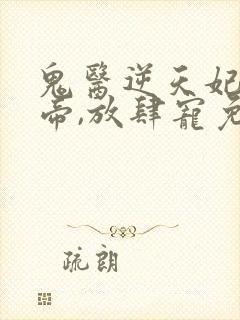 鬼醫逆天妃
帝,放肆寵
疏朗